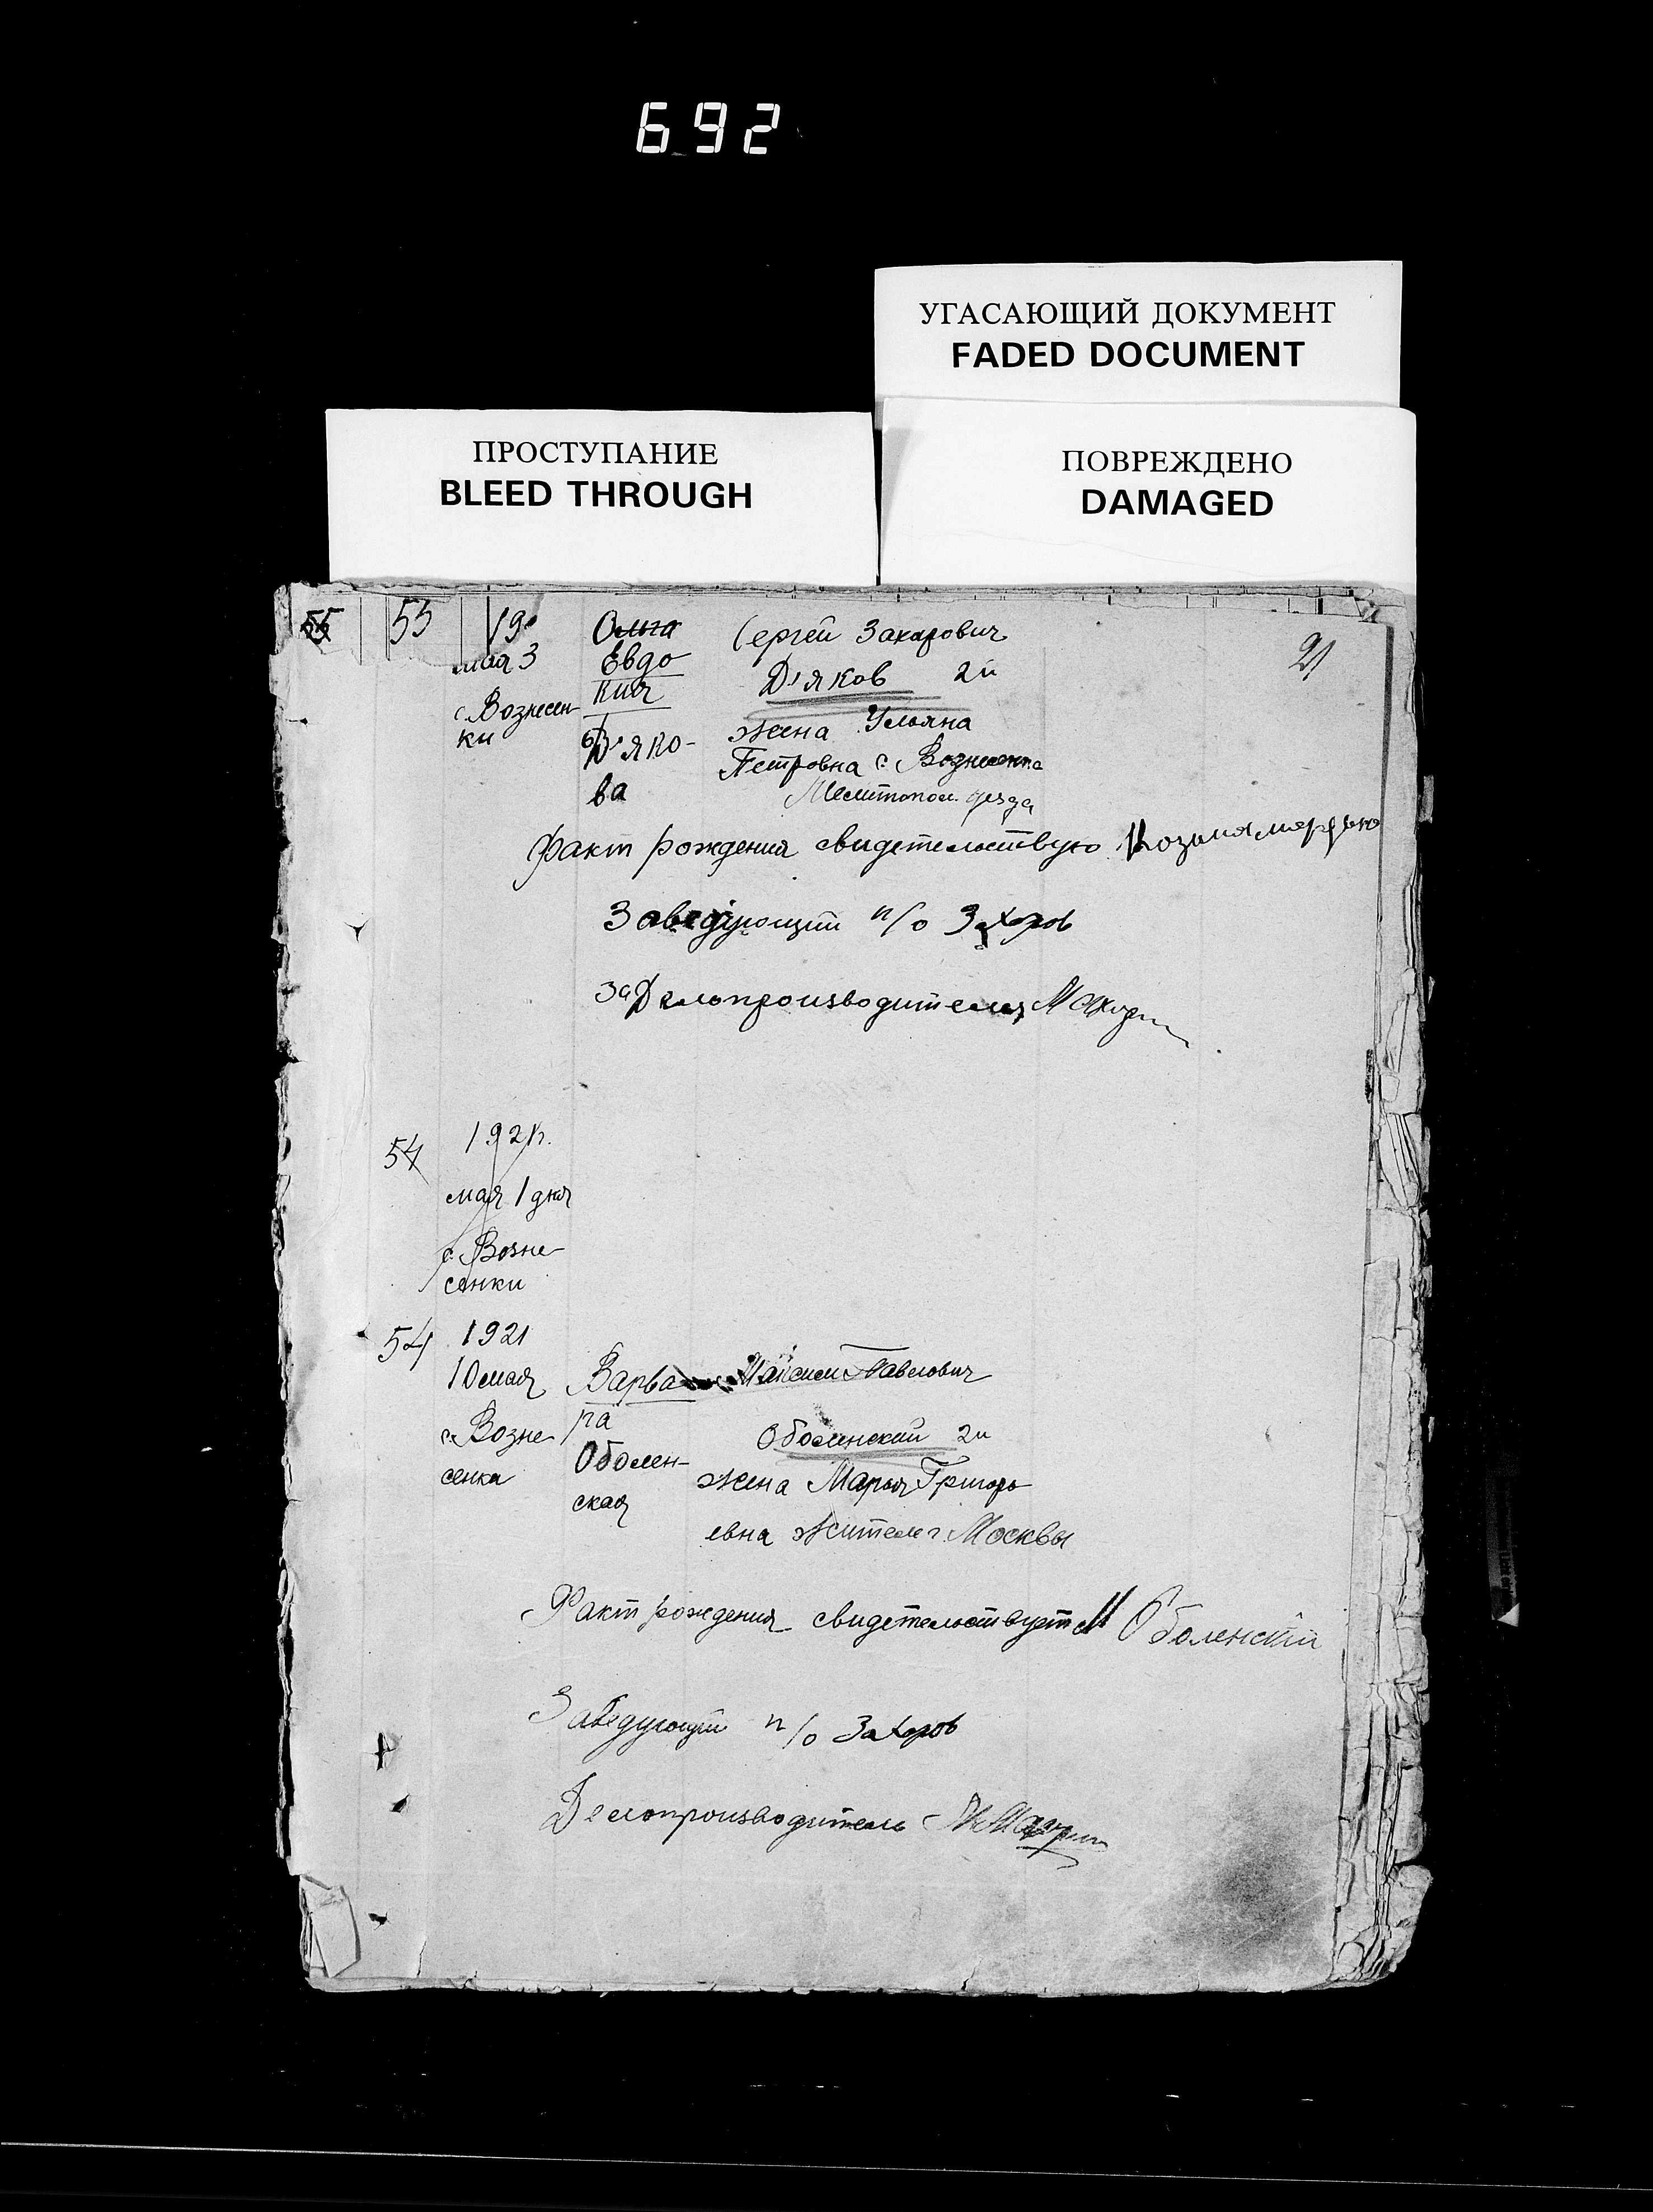 692
УГАСАЮЩИЙ ДОКУМЕНТ
FADED DOCUMENT
ПРОСТУПАНИЕ
BLEED THROUGH
ПОВРЕЖДЕНО
DAMAGED
21
53
мая 3
с. Вознесен-
ки
Ольга
Евдо
кия
Д'яко-
ва
Сергей Захарович
Д'яков 2й
жена Ульяна
Петровна с. Вознесенка
Мелитопол. уезда
Факт рождения свидетельствую
Заведующий п/о Захаров
за Делопроизводителя
54
1921г.
мая 1 дня
с. Возне-
сенки
54
1921
10 мая
с. Возне
сенка
Варва
ра
Оболен-
ская
Максим Павлович
Оболенский 2й
жена Марья Григорь
евна жители г. Москвы
Факт рождения свидетельствует М Оболенский
Заведующий п/о Захаров
Делопроизводитель